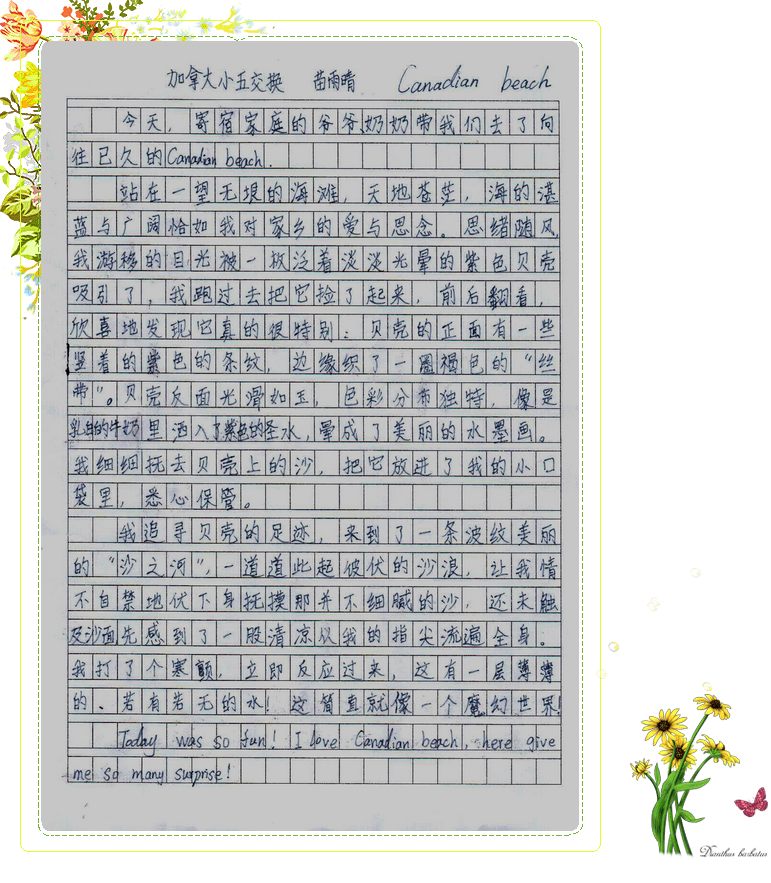 加拿大小五交换 苗雨晴 Canadian beach
今天，寄宿家庭的爷爷、奶奶带我们去了向
往已久的Canadian beach.
站在一望无垠的海滩，天地苍茫，海的湛
蓝与广阔恰如我对家乡的爱与思念。思绪随风，
我游移的目光被一枚泛着淡淡光晕的紫色贝壳
吸引了，我跑过去把它捡了起来，前后翻看，
欣喜地发现它真的很特别：贝壳的正面有一些
竖着的紫色的条纹，边缘织了一圈褐色的“丝
带”。贝壳反面光滑如玉，色彩分布独特，像是
乳白的牛奶里洒入了紫色的圣水，晕成了美丽的水墨画。
我细细抚去贝壳上的沙，把它放进了我的小口
袋里，悉心保管。
我追寻贝壳的足迹，来到了一条波纹美丽
的“沙之河”，一道道此起彼伏的沙浪，让我情
不自禁地伏下身抚摸那并不细腻的沙，还未触
及沙面先感到了一股清凉从我的指尖流遍全身。
我打了个寒颤，立即反应过来，这有一层薄薄
的、若有若无的水！这简直就像一个魔幻世界！
Today was so fun! I love Canadian beach, here give
me so many surprise!
Dianthus barbatus